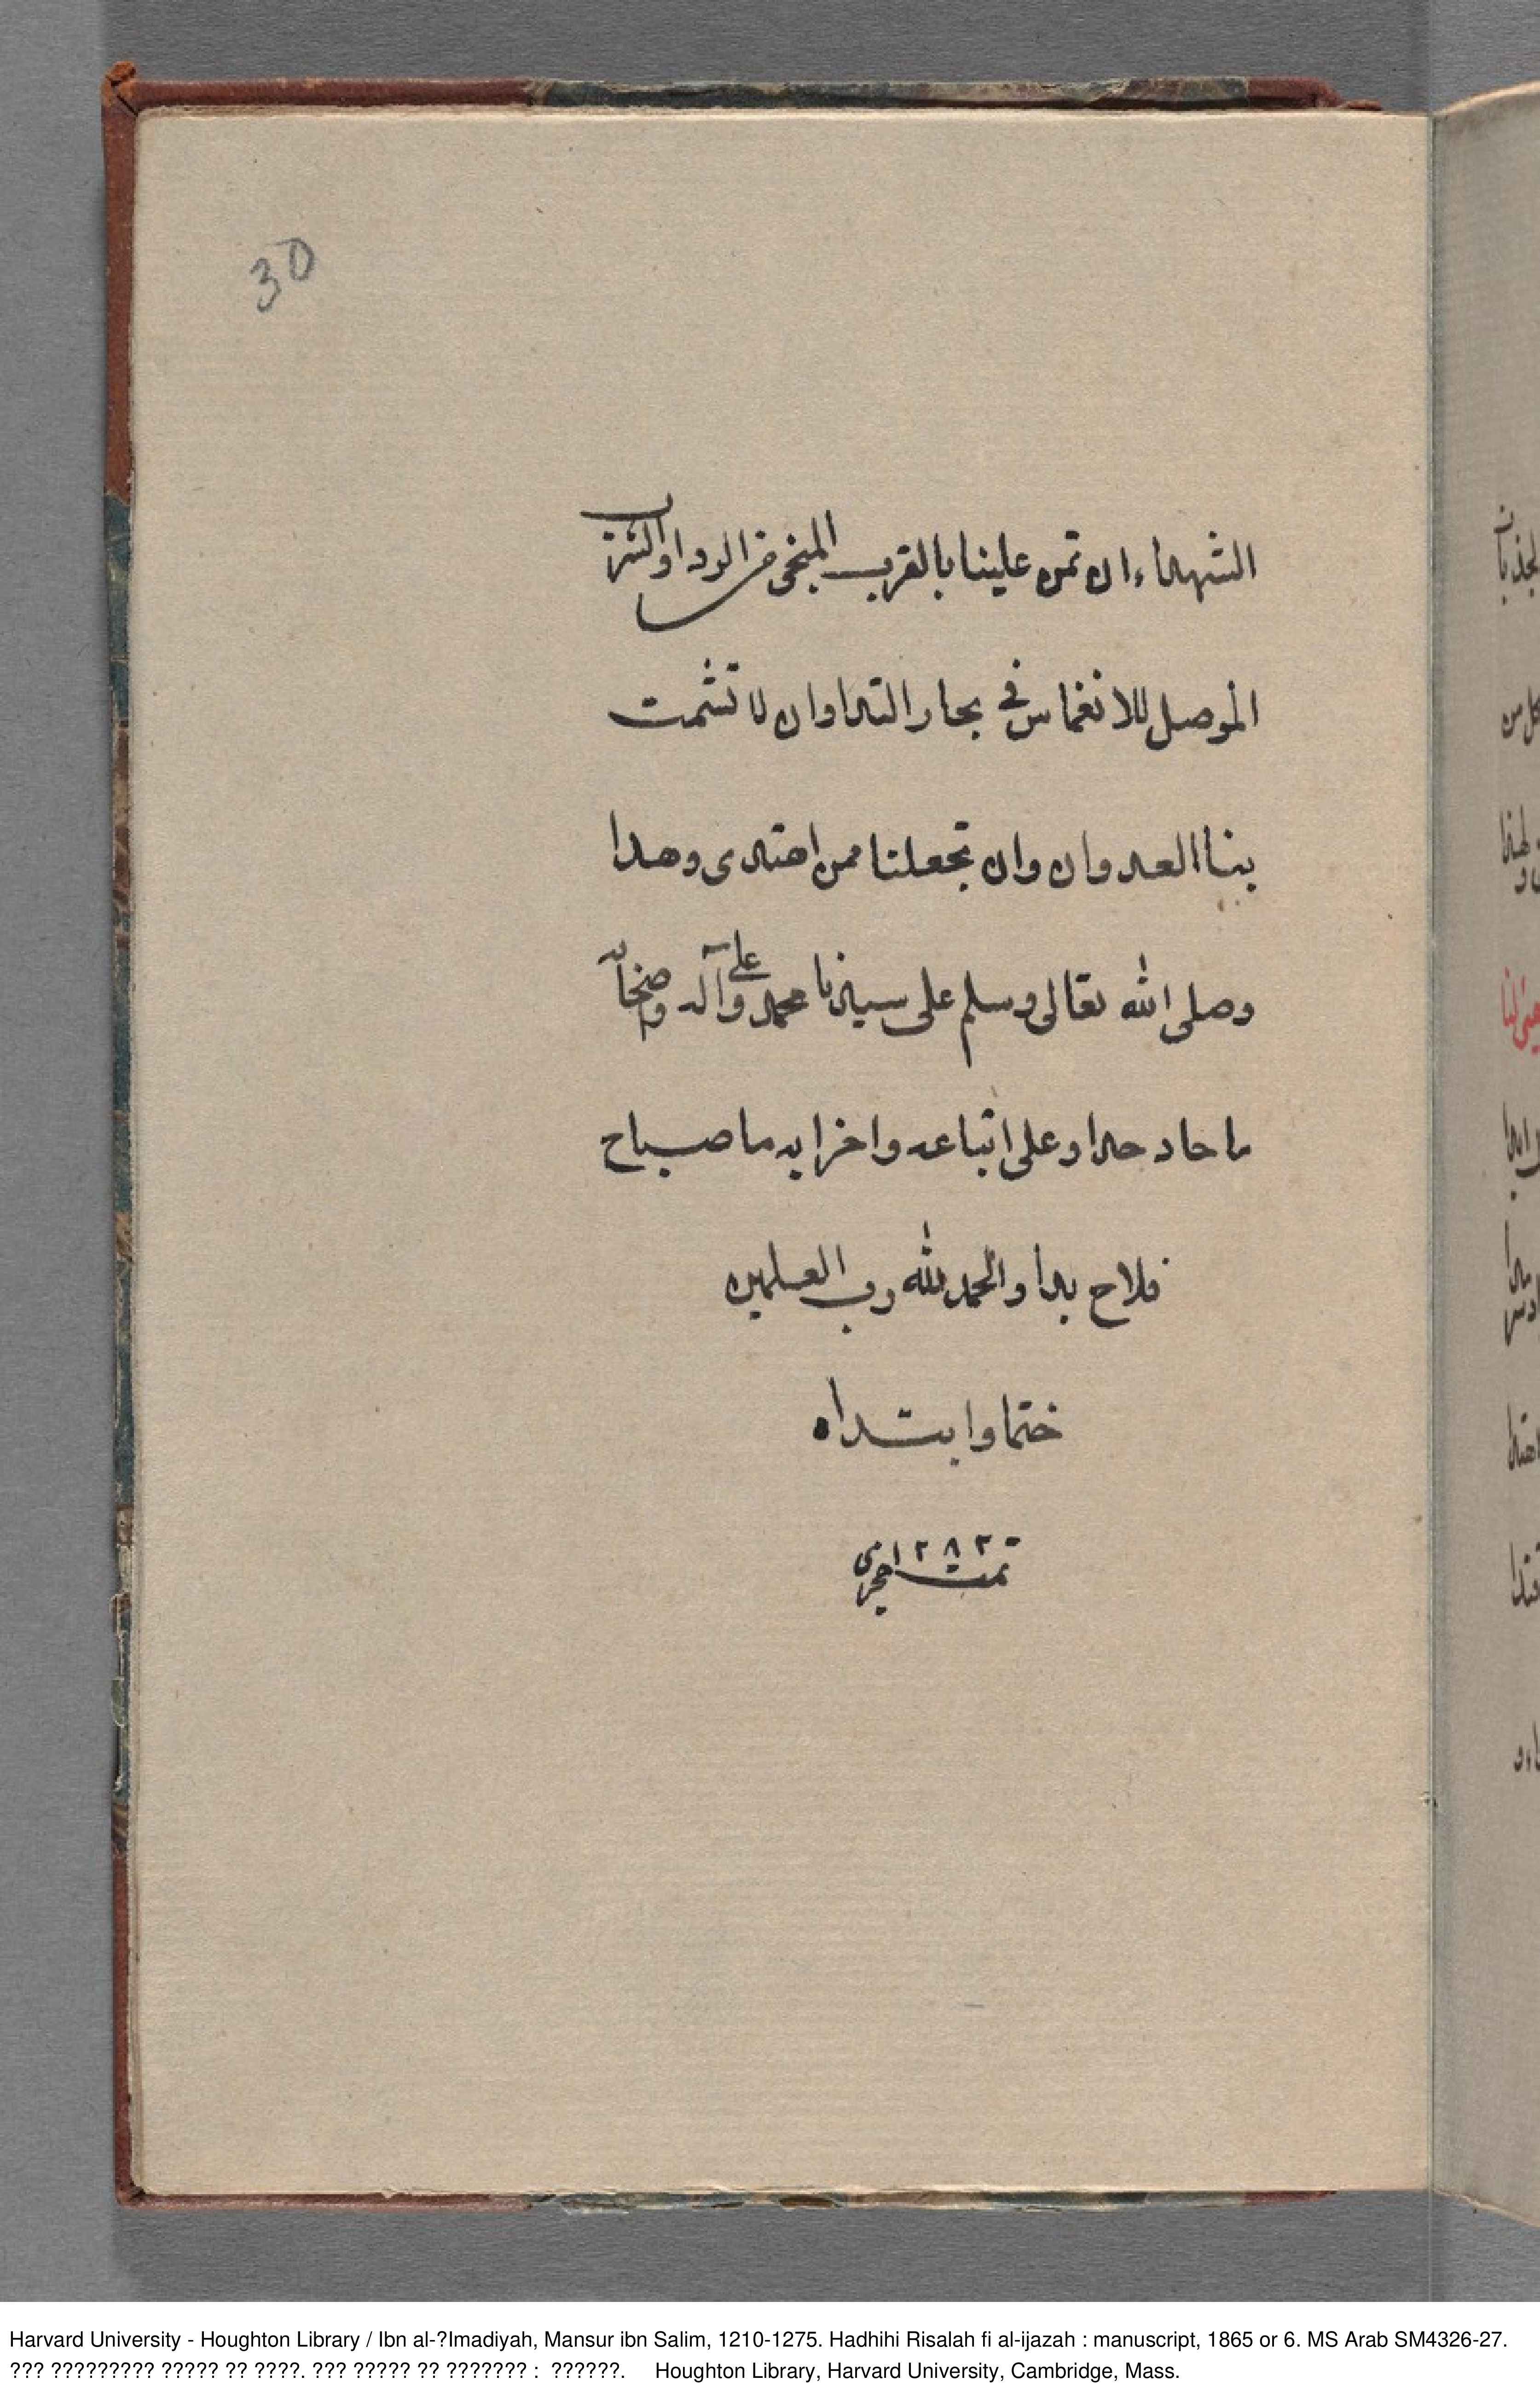 30
الشهداء ان تمن علينا بالقرب المنجى من الردا والشرب
الموصل للانغماس فى بحار الندا وان لا تشمت
بنا العدوان وان تجعلنا ممن اهتدى وهدا
وصلى الله تعالى وسلم على سيدنا محمد وعلى آله وصحابه
ما حاد حدا وعلى اتباعه واحزابه ما صباح
فلاح بدا والحمد لله رب العلمين
ختما وابتداه
تمت ١٢٨٢ هجرى
Harvard University - Houghton Library / Ibn al-?Imadiyah, Mansur ibn Salim, 1210-1275. Hadhihi Risalah fi al-ijazah : manuscript, 1865 or 6. MS Arab SM4326-27.
??? ????????? ????? ?? ????. ??? ????? ?? ??????? : ??????. Houghton Library, Harvard University, Cambridge, Mass.